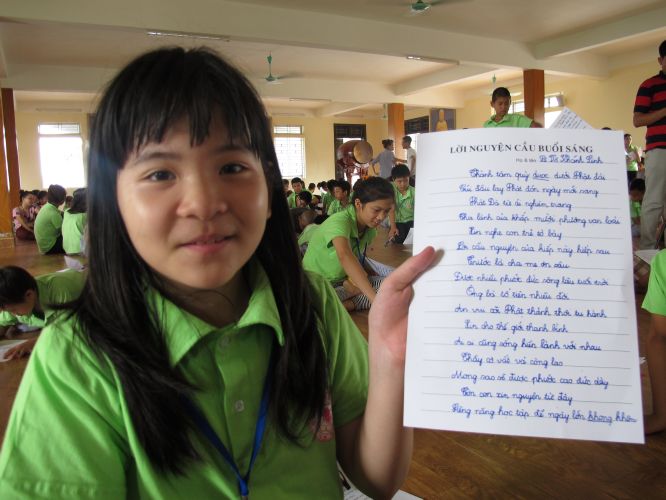 LỜI NGUYỆN CẦU BUỔI SÁNG
Họ & tên
Thành tâm quỳ dưới Phật đài
Cúi đầu lạy Phật đón ngày mới sang
Phật Đà từ ái nghiêm trang
Cha lành của khắp mười phương vạn loài
Xin nghe con trẻ tỏ bày
Lời cầu nguyện của kiếp này kiếp sau
Trước là cha mẹ ơn sâu
Được nhiều phước đức sống lâu tuổi trời
Ông bà tổ tiên nhiều đời
An vui cõi Phật thảnh thơi tu hành
Xin cho thế giới thanh bình
Ai ai cũng sống hiền lành với nhau
Thầy cô vất vả công lao
Mong sao sẽ được phước cao đức dày
Còn con xin nguyện từ đây
Siêng năng học tập để ngày lớn khôn